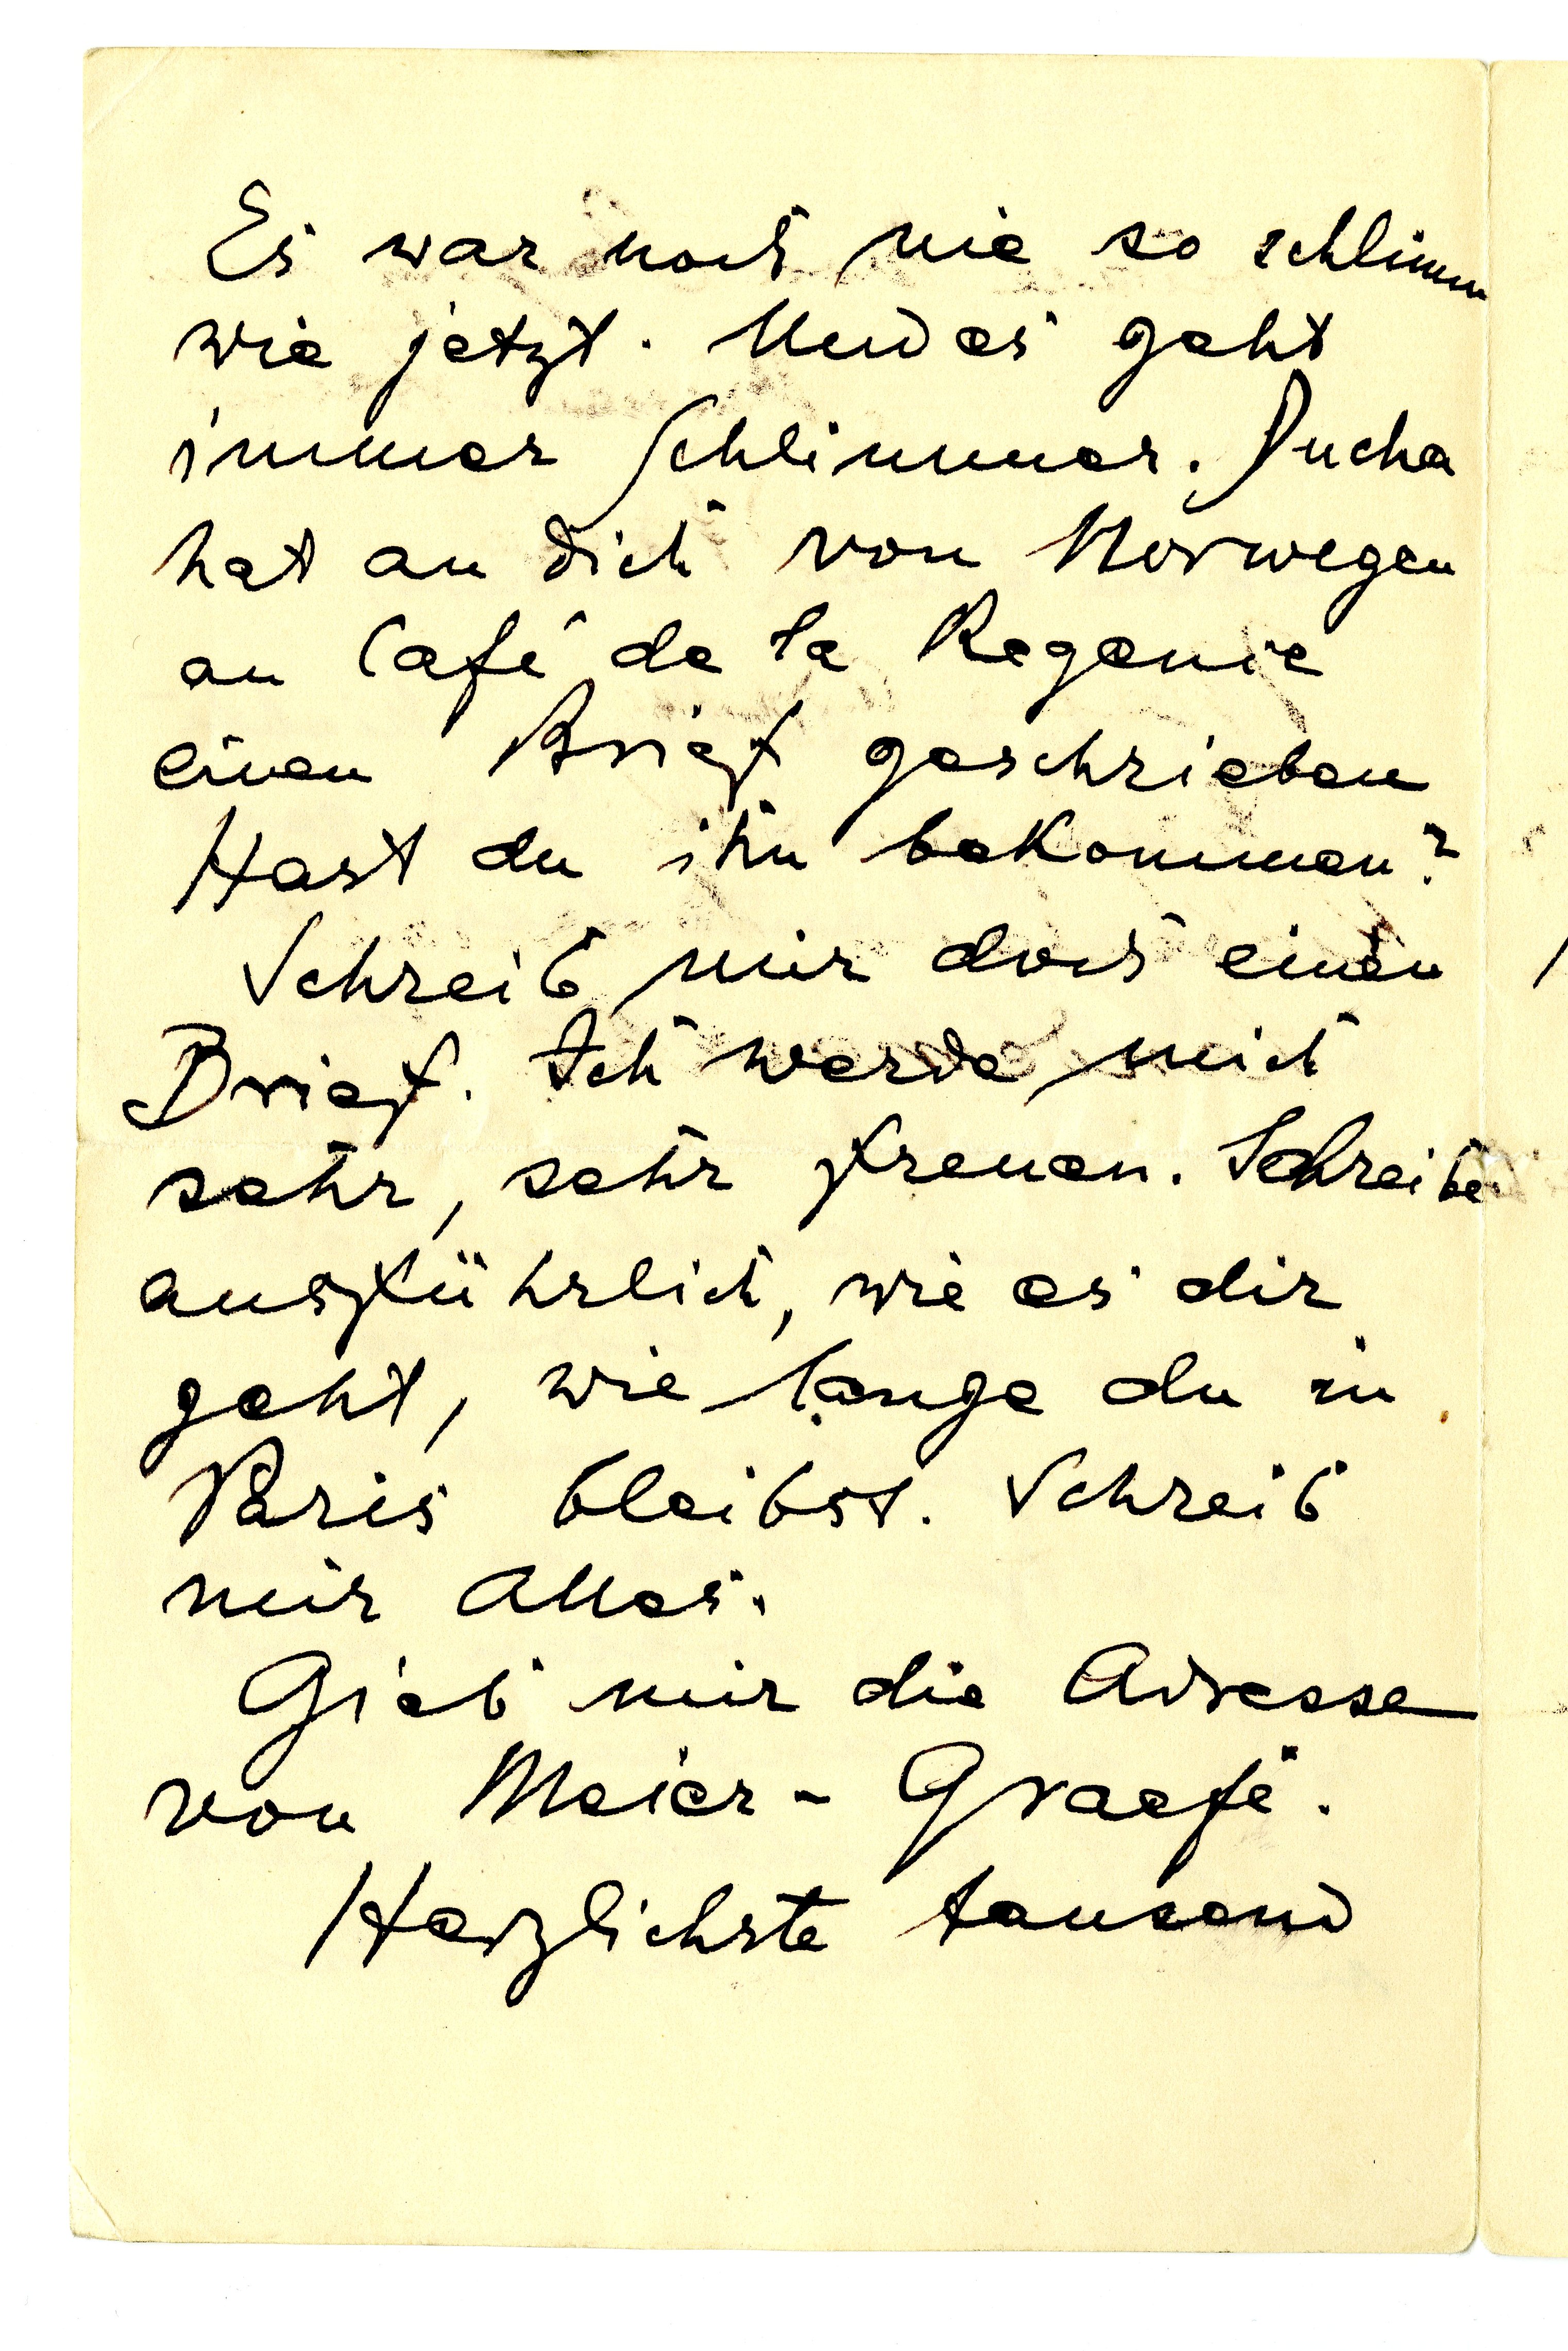 Es war noch nie so schlimm
wie jetzt. Und es geht
immer schlimmer. Ducha
hat an dich von Norwegen
an Café de la Regenie
einen Brief geschrieben
Hast du ihn bekommen?
Schreib mir doch einen
Brief. Ich werde mich
sehr, sehr freuen. Schreibe
ausführlich, wie es dir
geht, wie lange du in
Paris bleibst. Schreib
mir Alles.
Gieb mir die Adresse
von Meier-Graefe.
Herzlichste tausend